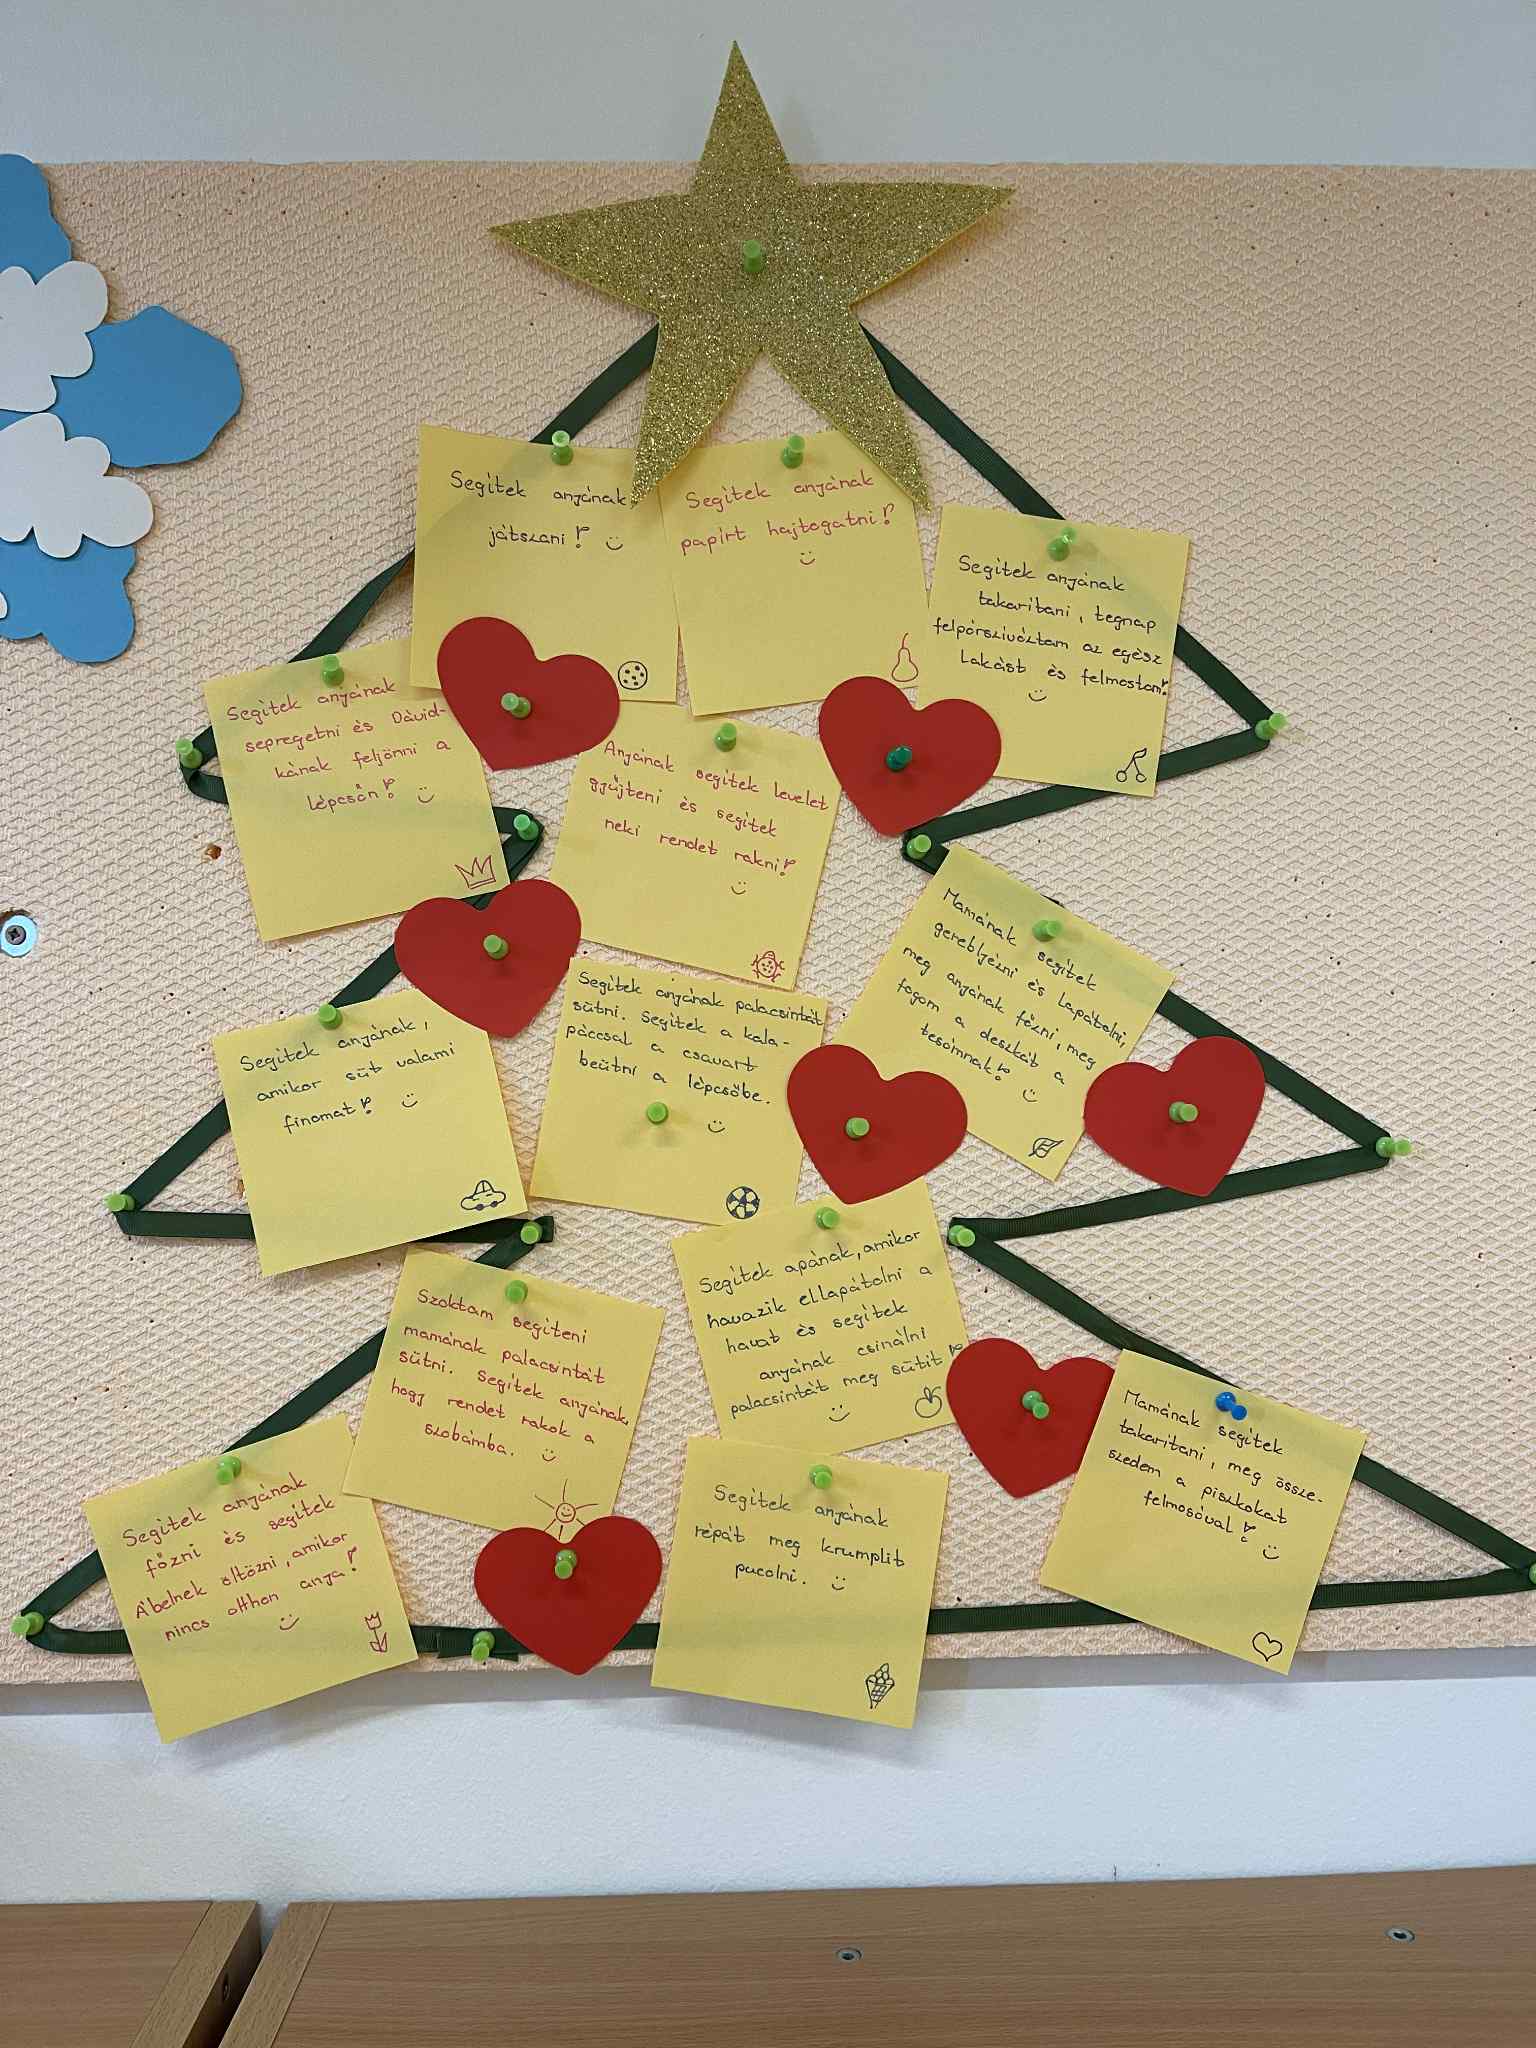 Segítek anyának
játszani!
Segítek anyának
papírt hajtogatni!
Segítek anyának
takarítani, tegnap
felpórszívóztam az egész
lakást és felmostam!
Segítek anyának
sepregetni és Dávid-
kának feljönni a
lépcsőn!
Anyának segítek levelet
gyűjteni és segítek
neki rendet rakni!
Mamának segítek
gereblyézni és lapátolni,
meg anyának főzni, meg
fogom a deszkát a
tesómnak!
Segítek anyának,
amikor süt valami
finomat!
Segítek anyának palacsintát
sütni. Segítek a kala-
páccsal a csavart
beütni a lépcsőbe.
Szoktam segíteni
mamának palacsintát
sütni. Segítek anyának,
hogy rendet rakok a
szobámba.
Segítek apának, amikor
havazik ellapátolni a
havat és segítek
anyának csinálni
palacsintát meg sütit!
Mamának segítek
takarítani, meg össze-
szedem a piszkokat
felmosóval!
Segítek anyának
főzni és segítek
Ábelnek öltözni, amikor
nincs otthon anya!
Segítek anyának
répát meg krumplit
pucolni.